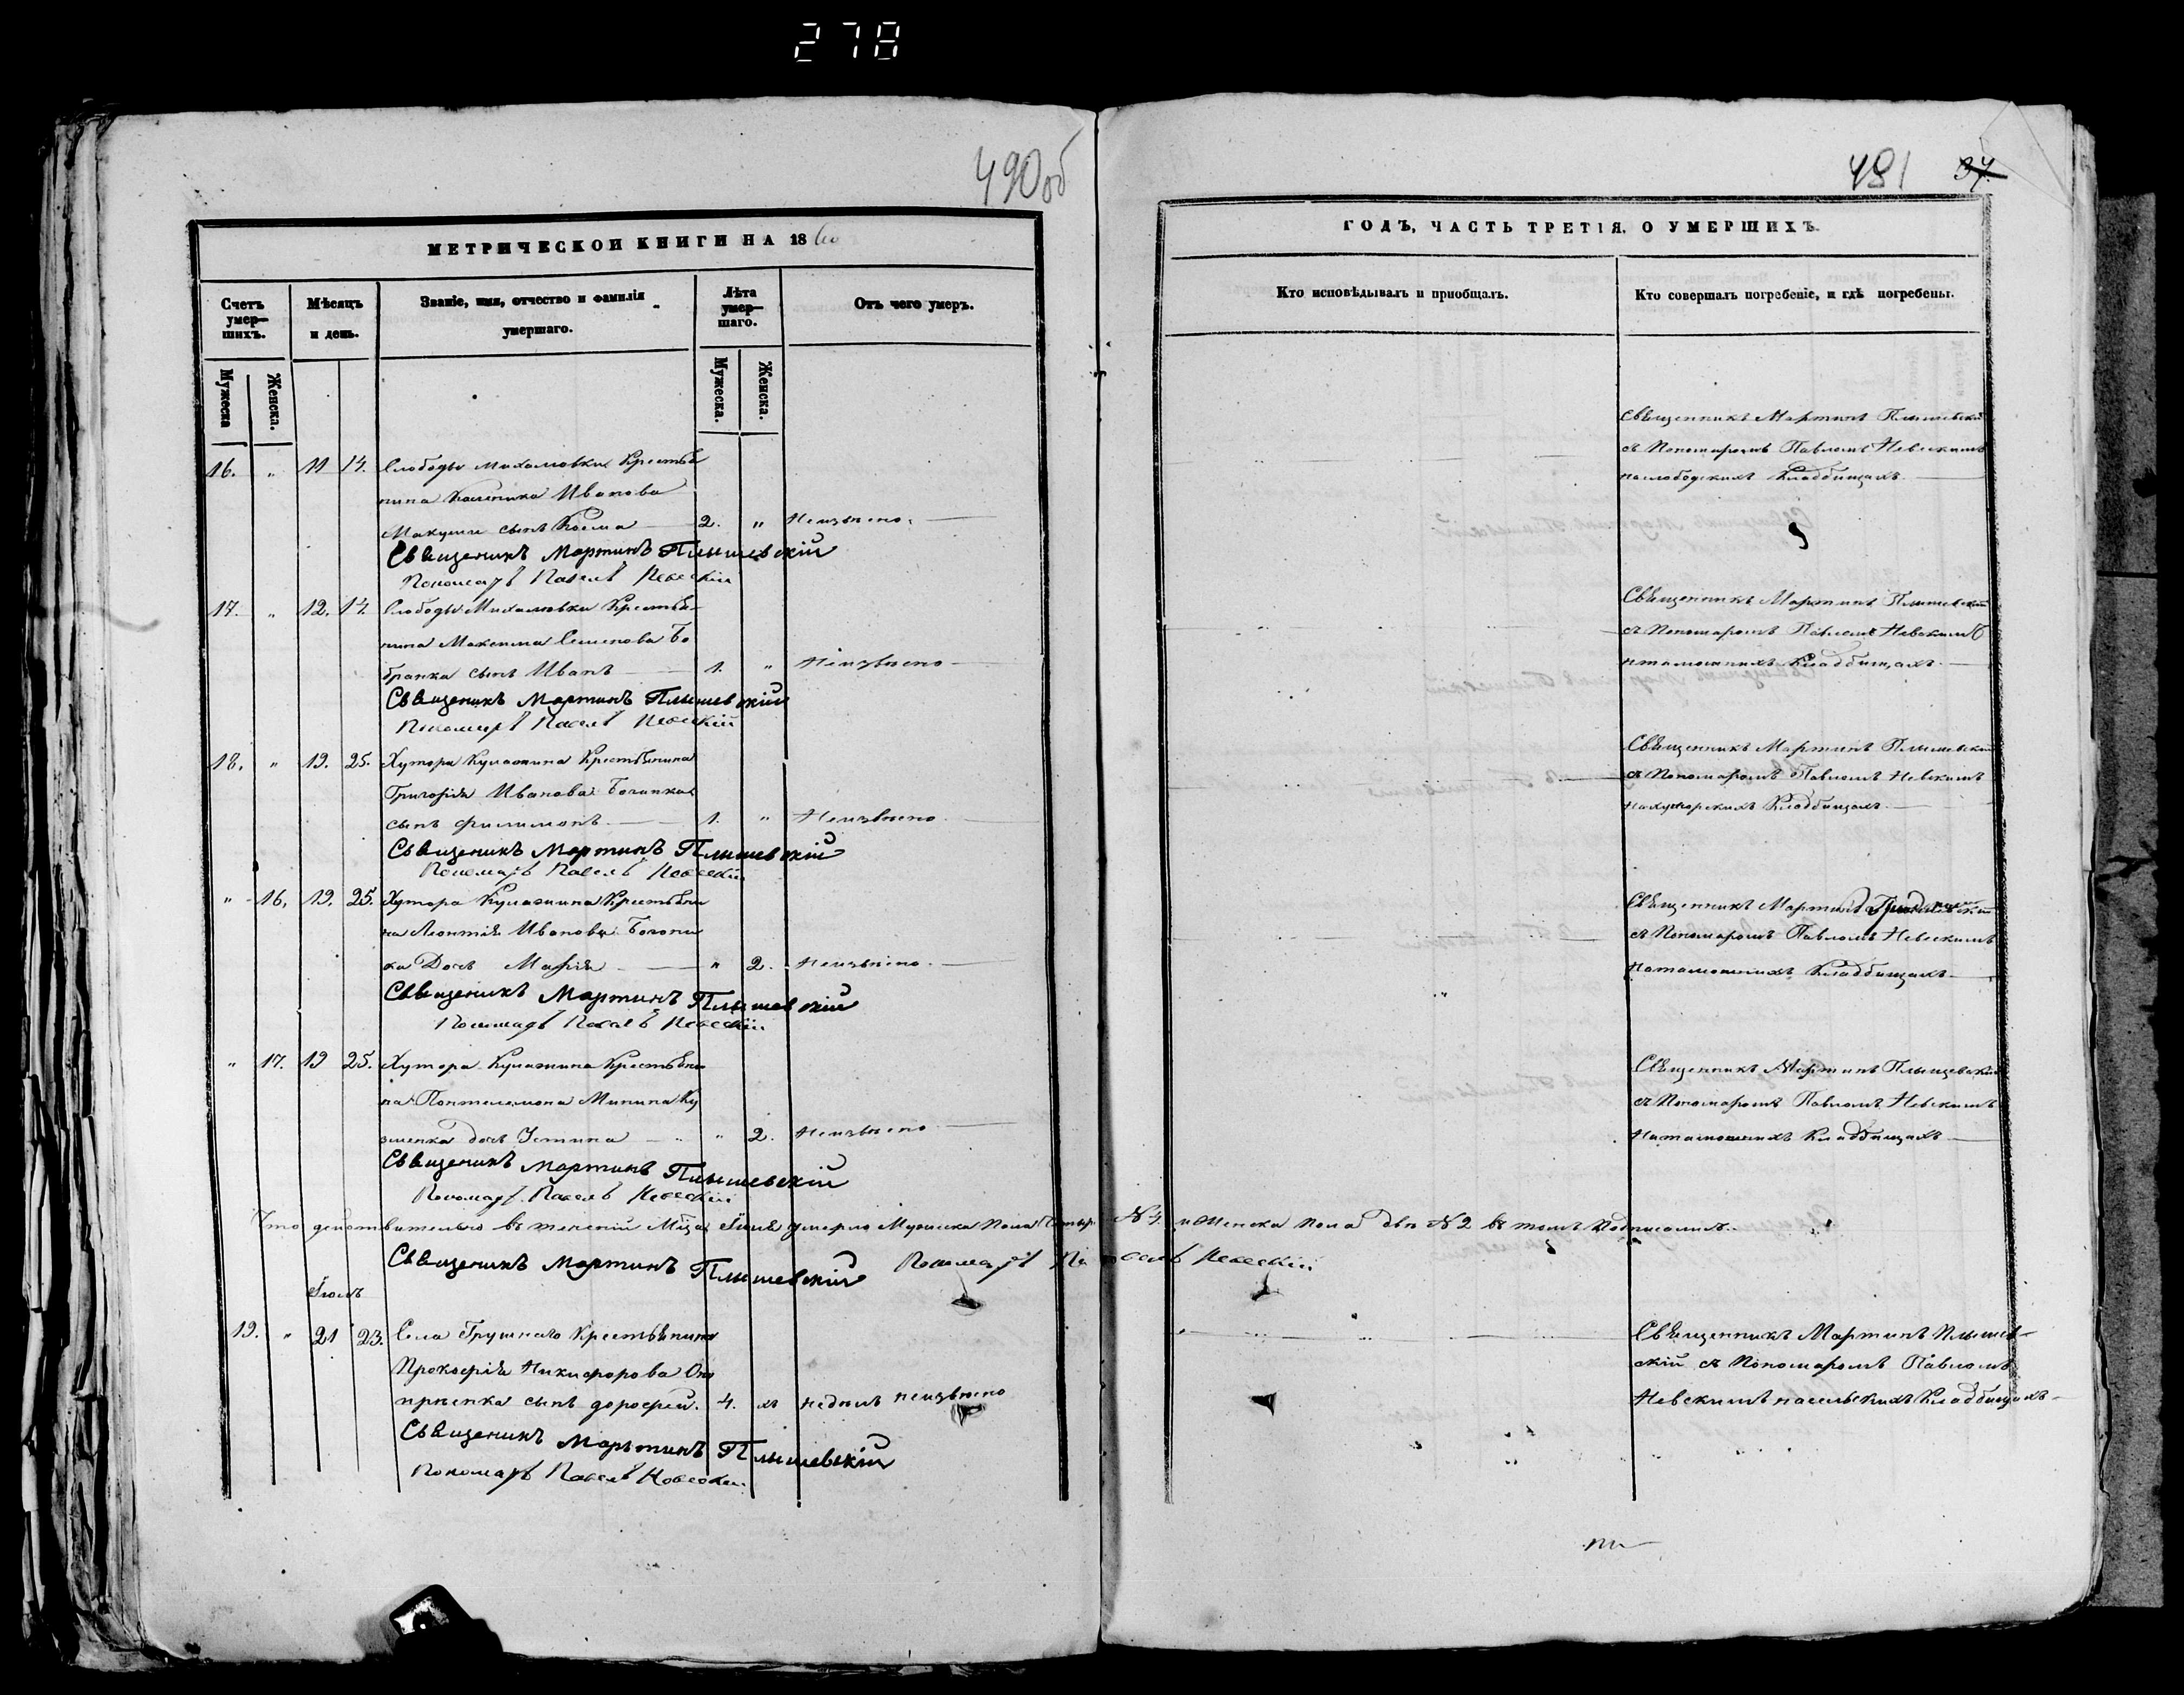 278
490об
МЕТРИЧЕСКОЙ КНИГИ НА 1860
Счетъ умер-шихъ.
Мѣсяцъ и день.
Званіе, имя, отчество и фамилія умершаго.
Лѣта умер-шаго.
Отъ чего умеръ.
Мужеска
Женска.
Мужеска.
Женска.
16. " 11 14. Слободы Михаловки Крестья
нина Каленика Иванова
сынъ Косма 2. "
Священикъ Мартинъ Плышевскій
Пономарь Павелъ Невскій
17. " 12. 14. Слободы Михаловки Крестья-
нина Максима Семенова Бо
бранка сынъ Иванъ 1. "
Священикъ Мартинъ Плышевскій
Пономарь Павелъ Невскій
18. " 19. 25. Хутора Кулажина Крестьянина
Григорія Иванова
сынъ Филимонъ 1. "
Священикъ Мартинъ Плышевскій
Пономарь Павелъ Невскій
" 16. 19. 25. Хутора Кулажина Крестьяни
на Леонтія Иванова
ка Дочь Марія " 2.
Священикъ Мартинъ Плышевскій
Пономарь Павелъ Невскій
" 17. 19 25. Хутора Кулажина Крестьяни
на Пантелемона Минина Ку
зменка дочь Устина " 2.
Священикъ Мартинъ Плышевскій
Пономарь Павелъ Невскій
Что действительно въ Іюне умерло Мужеска Пола N 4. и Женска пола две N 2 въ томъ Подписались.
Священикъ Мартинъ Плышевскій Пономарь Павелъ Невскій
Іюль
19. " 21 23. Села Грушнаго Крестьянина
Прокофія Никифорова
сынъ Дорофей. 4.
Священикъ Мартинъ Плышевскій
Пономарь Павелъ Невскій
491 37
ГОДЪ, ЧАСТЬ ТРЕТІЯ, О УМЕРШИХЪ.
Кто исповѣдывалъ и пріобщалъ.
Кто совершалъ погребеніе, и гдѣ погребены.
Священникъ Мартинъ Плышевскій
съ Пономаромъ Павломъ Невскимъ
на слободскихъ Кладбищахъ.
Священникъ Мартинъ Плышевскій
съ Пономаромъ Павломъ Невскимъ
Кладбищахъ.
Священникъ Мартинъ Плышевскій
съ Пономаромъ Павломъ Невскимъ
на хуторскихъ Кладбищахъ.
Священникъ Мартинъ
съ Пономаромъ Павломъ Невскимъ
на тамошнихъ Кладбищахъ.
Священникъ Мартинъ Плышевскій
съ Пономаромъ Павломъ Невскимъ
на тамошнихъ Кладбищахъ
Священникъ Мартинъ Плышев-
скій съ Пономаромъ Павломъ
Невскимъ на сельскихъ Кладбищахъ